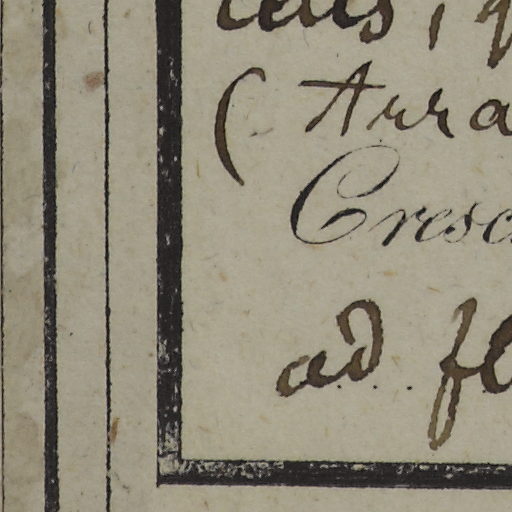 (Arra
Cresc
ad fl